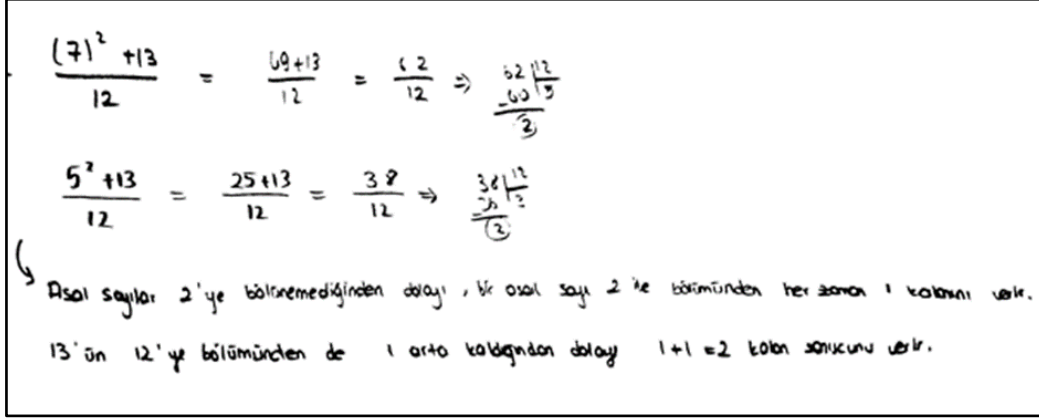 (7)² +13 / 12 = 49+13 / 12 = 62 / 12 ⇒ 62 | 12
-60 | 5
2
5² +13 / 12 = 25+13 / 12 = 38 / 12 ⇒ 38 | 12
-36 | 3
2
Asal sayılar 2'ye bölünemediğinden dolayı, bir asal sayı 2 ile bölümünden her zaman 1 kalanını verir.
13'ün 12'ye bölümünden de 1 arta kaldığından dolayı 1+1=2 kalan sonucunu verir.